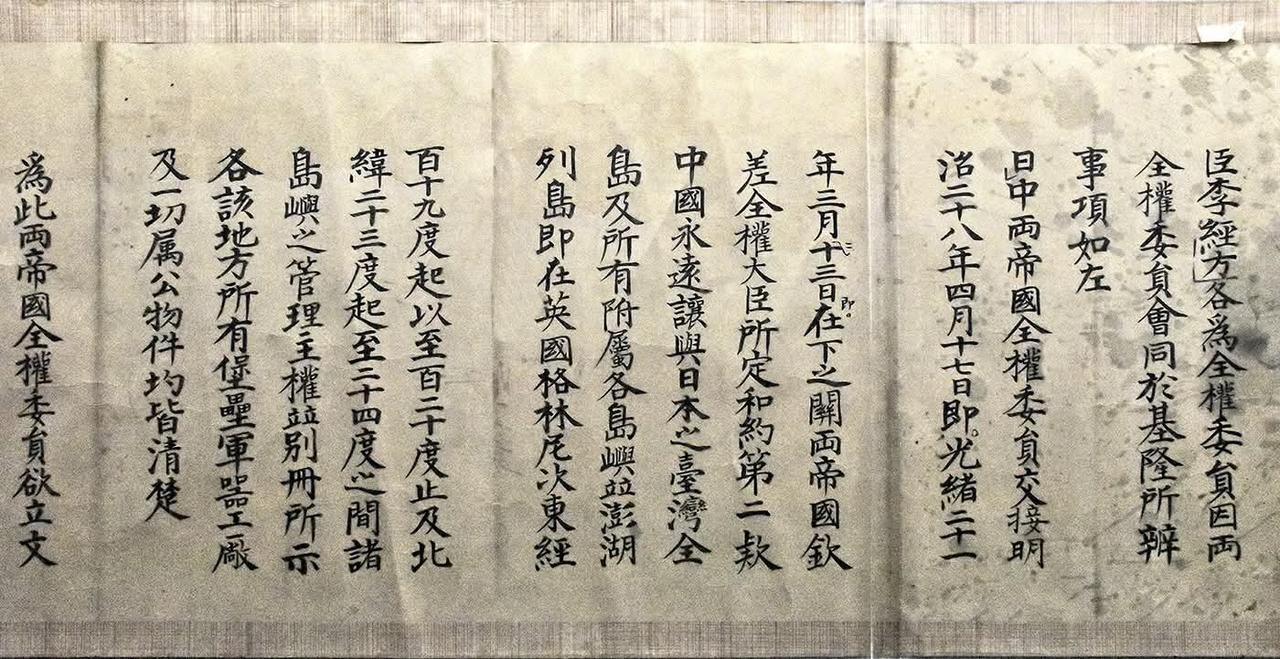 臣李經方」各爲全權委員因両
全權委員會同於基隆所辨
事項如左
日中両帝國全權委員交接明
治二十八年四月十七日即光緒二十一
年三月十三日在下之關両帝國欽
差全權大臣所定和約第二款
中國永遠讓與日本之臺灣全
島及所有附屬各島嶼並澎湖
列島即在英國格林尼次東經
百十九度起以至百二十度止及北
緯二十三度起至二十四度之間諸
島嶼之管理主權並別冊所示
各該地方所有堡壘軍器工廠
及一切属公物件均皆清楚
爲此両帝國全權委員欲立文